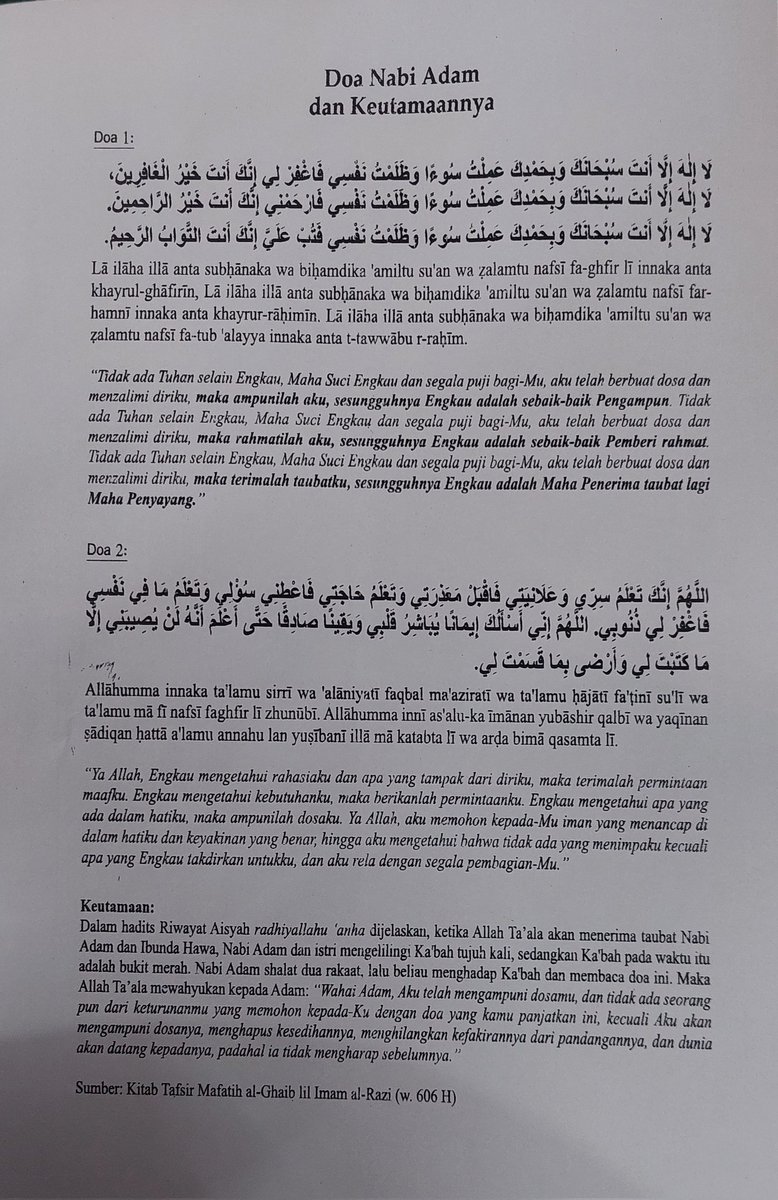 Doa Nabi Adam
dan Keutamaannya
Doa 1:
لَا إِلٰهَ إِلَّا أَنْتَ سُبْحَانَكَ وَبِحَمْدِكَ عَمِلْتُ سُوءًا وَظَلَمْتُ نَفْسِي فَاغْفِرْ لِي إِنَّكَ أَنْتَ خَيْرُ الْغَافِرِينَ،
لَا إِلٰهَ إِلَّا أَنْتَ سُبْحَانَكَ وَبِحَمْدِكَ عَمِلْتُ سُوءًا وَظَلَمْتُ نَفْسِي فَارْحَمْنِي إِنَّكَ أَنْتَ خَيْرُ الرَّاحِمِينَ.
لَا إِلٰهَ إِلَّا أَنْتَ سُبْحَانَكَ وَبِحَمْدِكَ عَمِلْتُ سُوءًا وَظَلَمْتُ نَفْسِي فَتُبْ عَلَيَّ إِنَّكَ أَنْتَ التَّوَابُ الرَّحِيمُ.
Lā ilāha illā anta subḥānaka wa biḥamdika 'amiltu su'an wa ẓalamtu nafsī fa-ghfir lī innaka anta
khayrul-ghāfirīn, Lā ilāha illā anta subḥānaka wa biḥamdika 'amiltu su'an wa ẓalamtu nafsī far-
hamnī innaka anta khayrur-rāḥimīn. Lā ilāha illā anta subḥānaka wa biḥamdika 'amiltu su'an wa
ẓalamtu nafsī fa-tub 'alayya innaka anta t-tawwābu r-raḥīm.
“Tidak ada Tuhan selain Engkau, Maha Suci Engkau dan segala puji bagi-Mu, aku telah berbuat dosa dan
menzalimi diriku, maka ampunilah aku, sesungguhnya Engkau adalah sebaik-baik Pengampun. Tidak
ada Tuhan selain Engkau, Maha Suci Engkau dan segala puji bagi-Mu, aku telah berbuat dosa dan
menzalimi diriku, maka rahmatilah aku, sesungguhnya Engkau adalah sebaik-baik Pemberi rahmat.
Tidak ada Tuhan selain Engkau, Maha Suci Engkau dan segala puji bagi-Mu, aku telah berbuat dosa dan
menzalimi diriku, maka terimalah taubatku, sesungguhnya Engkau adalah Maha Penerima taubat lagi
Maha Penyayang.”
Doa 2:
اللَّهُمَّ إِنَّكَ تَعْلَمُ سِرِّي وَعَلَانِيَتِي فَاقْبَلْ مَعْذِرَتِي وَتَعْلَمُ حَاجَتِي فَاعْطِنِي سُؤْلِي وَتَعْلَمُ مَا فِي نَفْسِي
فَاغْفِرْ لِي ذُنُوبِي. اللَّهُمَّ إِنِّي أَسْأَلُكَ إِيمَانًا يُبَاشِرُ قَلْبِي وَيَقِينًا صَادِقًا حَتَّى أَعْلَمَ أَنَّهُ لَنْ يُصِيبَنِي إِلَّا
مَا كَتَبْتَ لِي وَأَرْضَى بِمَا قَسَمْتَ لِي.
Allāhumma innaka ta'lamu sirrī wa 'alāniyatī faqbal ma'aziratī wa ta'lamu ḥājātī fa'ṭinī su'lī wa
ta'lamu mā fī nafsī faghfir lī zhunūbī. Allāhumma innī as'alu-ka īmānan yubāshir qalbī wa yaqīnan
ṣādiqan ḥattā a'lamu annahu lan yuṣībanī illā mā katabta lī wa arḍa bimā qasamta lī.
“Ya Allah, Engkau mengetahui rahasiaku dan apa yang tampak dari diriku, maka terimalah permintaan
maafku. Engkau mengetahui kebutuhanku, maka berikanlah permintaanku. Engkau mengetahui apa yang
ada dalam hatiku, maka ampunilah dosaku. Ya Allah, aku memohon kepada-Mu iman yang menancap di
dalam hatiku dan keyakinan yang benar, hingga aku mengetahui bahwa tidak ada yang menimpaku kecuali
apa yang Engkau takdirkan untukku, dan aku rela dengan segala pembagian-Mu.”
Keutamaan:
Dalam hadits Riwayat Aisyah radhiyallahu ‘anha dijelaskan, ketika Allah Ta’ala akan menerima taubat Nabi
Adam dan Ibunda Hawa, Nabi Adam dan istri mengelilingi Ka'bah tujuh kali, sedangkan Ka'bah pada waktu itu
adalah bukit merah. Nabi Adam shalat dua rakaat, lalu beliau menghadap Ka'bah dan membaca doa ini. Maka
Allah Ta’ala mewahyukan kepada Adam: “Wahai Adam, Aku telah mengampuni dosamu, dan tidak ada seorang
pun dari keturunanmu yang memohon kepada-Ku dengan doa yang kamu panjatkan ini, kecuali Aku akan
mengampuni dosanya, menghapus kesedihannya, menghilangkan kefakirannya dari pandangannya, dan dunia
akan datang kepadanya, padahal ia tidak mengharap sebelumnya.”
Sumber: Kitab Tafsir Mafatih al-Ghaib lil Imam al-Razi (w. 606 H)